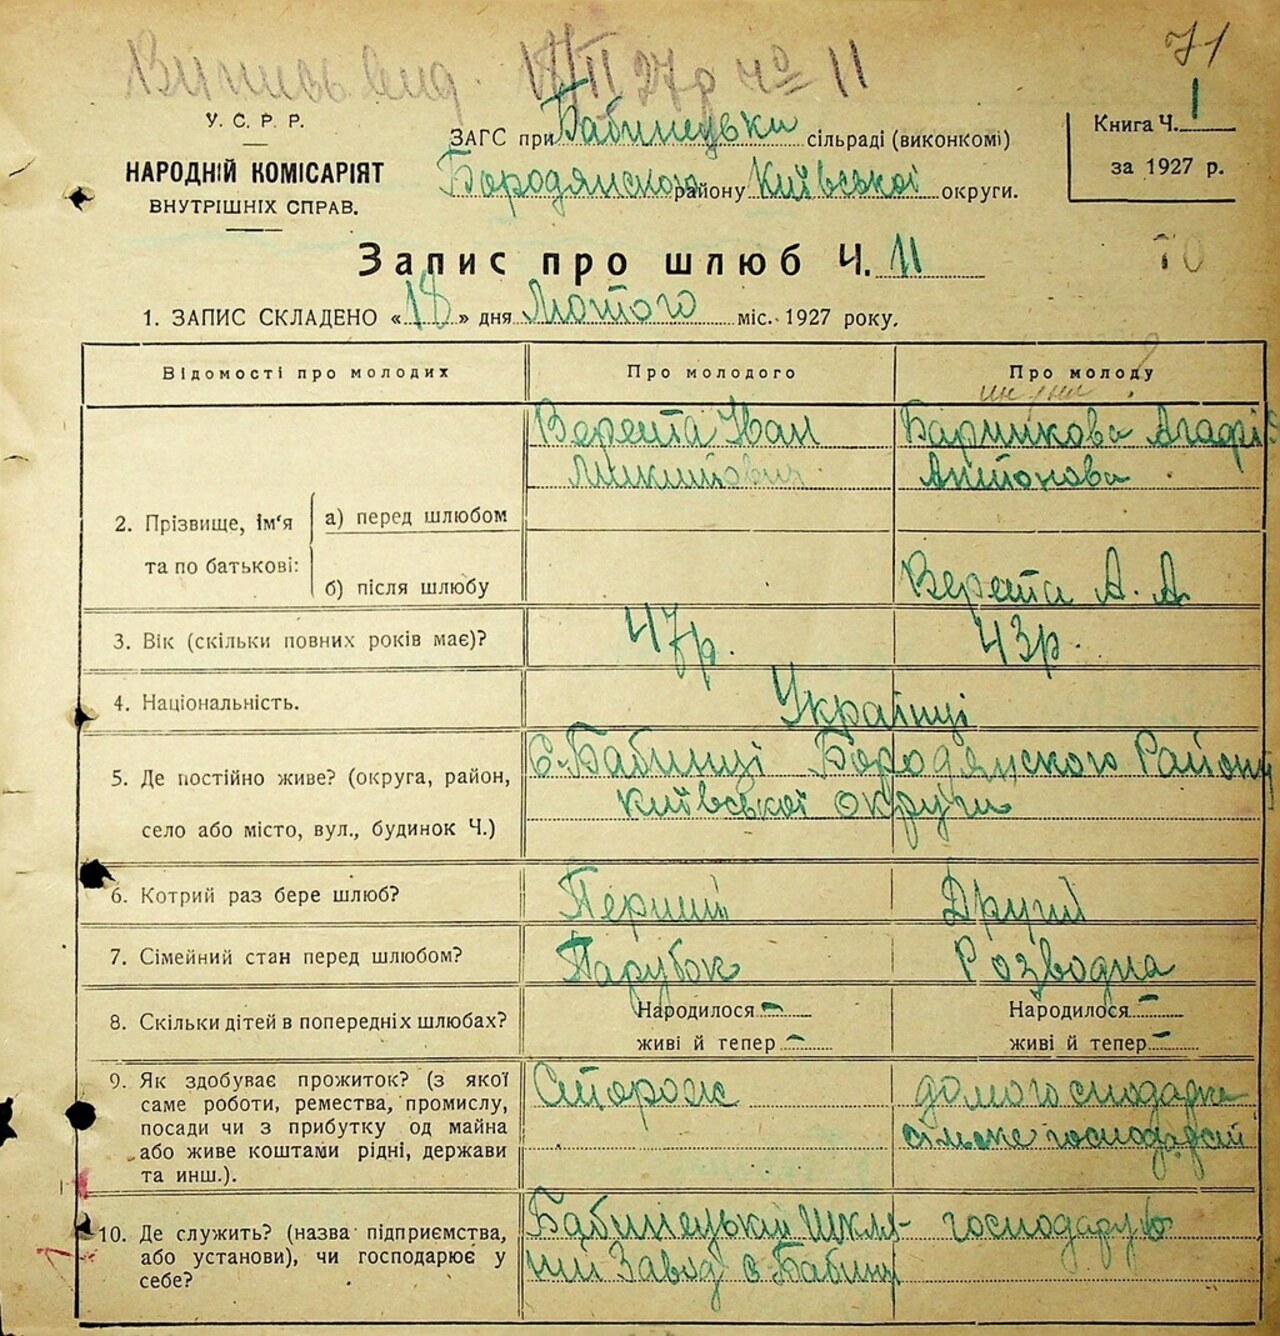 Випись вид. 18/II 27р чо 11
71
У. С. Р. Р.
НАРОДНІЙ КОМІСАРІЯТ
ВНУТРІШНІХ СПРАВ.
ЗАГС при Бабинецьки сільраді (виконкомі)
Бородянского району Київської округи.
Книга Ч. 1
за 1927 р.
Запис про шлюб Ч. 11
70
1. ЗАПИС СКЛАДЕНО «18» дня Лютого міс. 1927 року.
Відомості про молодих
Про молодого
Про молоду
2. Прізвище, ім'я та по батькові:
а) перед шлюбом
Верета Іван
Микитович
Баринкова Агафія
Антонова
б) після шлюбу
Верета А. А
3. Вік (скільки повних років має)?
47р.
43р.
4. Національність.
Українці
5. Де постійно живе? (округа, район,
село або місто, вул., будинок Ч.)
С. Бабинці Бородянского Району
Київської округи
6. Котрий раз бере шлюб?
Перший
Другий
7. Сімейний стан перед шлюбом?
Парубок
Розводна
8. Скільки дітей в попередніх шлюбах?
Народилося -
живі й тепер -
Народилося -
живі й тепер -
9. Як здобуває прожиток? (з якої
саме роботи, ремества, промислу,
посади чи з прибутку од майна
або живе коштами рідні, держави
та инш.).
Сторож
домогосподарка
10. Де служить? (назва підприємства,
або установи), чи господарює у
себе?
Бабинецький Шкля-
ний Завод с. Бабинці
господарує